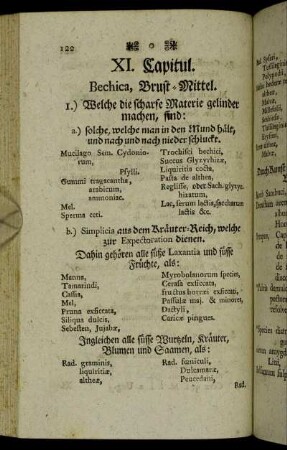 122
XI. Capitul.
Bechica, Brust-Mittel.
1.) Welche die scharfe Materie gelinder
machen, sind:
a.) solche, welche man in den Mund hält,
und nach und nach nieder schluckt.
Mucilago Sem. Cydonio-
rum,
Psylli,
Gummi tragacanthæ,
arabicum,
ammoniac.
Mel,
Sperma ceti.
Trochisci bechici,
Succus Glyzyrhizæ,
Liquiritia cocta,
Pasta de althæa,
Reglisse, oder Sach. glycyr-
hizatum,
Lac, serum lactis, saccharum
lactis &c.
b.) Simplicia aus dem Kräuter-Reich, welche
zur Expectoration dienen.
Dahin gehören alle süße Laxantia und süsse
Früchte, als:
Manna,
Tamarindi,
Cassia,
Mel,
Pruna exsiccata,
Siliqua dulcis,
Sebesten, Jujubæ,
Myrobolanorum species,
Cerasa exsiccata,
fructus berberi exsiccati,
Passulæ maj. & minores,
Dactyli,
Caricæ pingues.
Ingleichen alle süsse Wurtzeln, Kräuter,
Blumen und Saamen, als:
Rad. graminis,
liquiritiæ,
altheæ,
Rad. fœniculi,
Dulcamaræ,
Peucedani,
Rad.